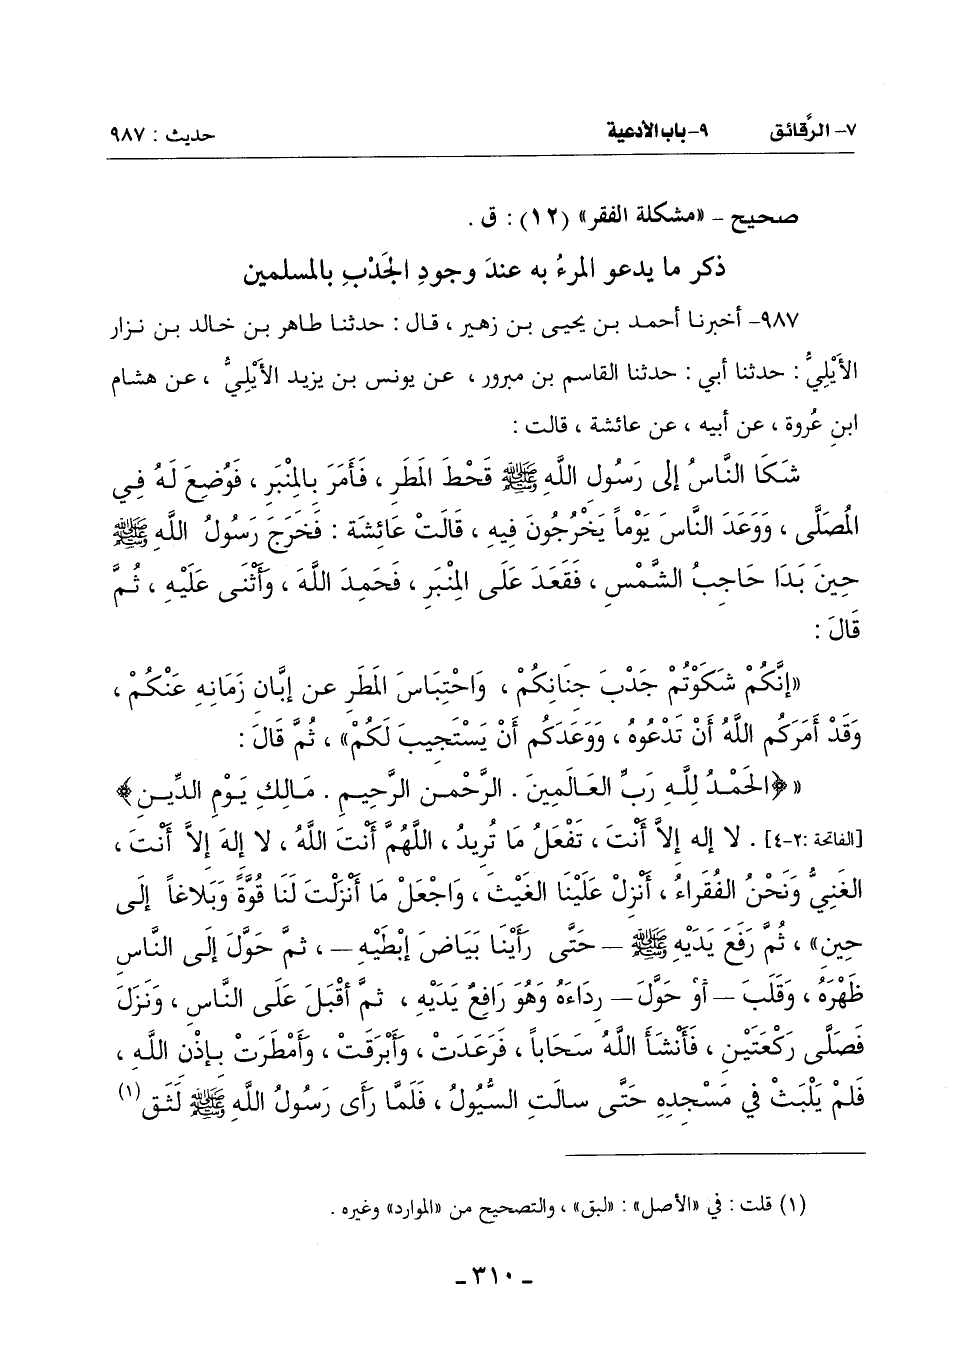 ٧- الرَّقائق ٩- باب الأدعية حديث : ٩٨٧
صحيح – «مشكلة الفقر» (١٢) : ق .
ذكر ما يدعو المرءُ به عندَ وجودِ الجَدْبِ بالمسلمين
٩٨٧- أخبرنا أحمد بن يحيى بن زهير ، قال : حدثنا طاهر بن خالد بن نزار
الأَيْلِيُّ : حدثنا أبي : حدثنا القاسم بن مبرور ، عن يونس بن يزيد الأَيْلِيُّ ، عن هشام
ابنِ عُروة ، عن أبيه ، عن عائشة ، قالت :
شَكَا النَّاسُ إلى رَسُولِ اللَّهِ ﷺ قَحْطَ المَطَرِ ، فَأَمَرَ بالمِنْبَرِ ، فَوُضِعَ لَهُ فِي
المُصَلَّى ، وَوَعَدَ النَّاسَ يَوْماً يَخْرُجُونَ فِيهِ ، قَالَتْ عَائِشَة : فَخَرَجَ رَسُولُ اللَّهِ ﷺ
حِينَ بَدَا حَاجِبُ الشَّمْسِ ، فَقَعَدَ عَلَى المِنْبَرِ ، فَحَمِدَ اللَّهَ ، وَأَثْنَى عَلَيْهِ ، ثُمَّ
قَالَ :
«إنَّكُمْ شَكَوْتُمْ جَدْبَ جِنَانِكُمْ ، وَاحْتِبَاسَ المَطَرِ عن إبَّانِ زَمَانِهِ عَنْكُمْ ،
وَقَدْ أَمَرَكُم اللَّهُ أَنْ تَدْعُوهُ ، وَوَعَدَكُم أَنْ يَسْتَجِيبَ لَكُمْ» ، ثُمَّ قَالَ :
«﴿الحَمْدُ للَّهِ رَبِّ العَالَمِينَ . الرَّحْمنِ الرَّحِيمِ . مَالِكِ يَوْمِ الدِّينِ﴾
[الفاتحة :٢-٤] . لا إله إلاَّ أَنْتَ ، تَفْعَلُ مَا تُرِيدُ ، اللَّهُمَّ أَنْتَ اللَّهُ ، لا إلهَ إلاَّ أَنْتَ ،
الغَنِيُّ وَنَحْنُ الفُقَراءُ ، أَنْزِلْ عَلَيْنَا الغَيْثَ ، وَاجْعَلْ مَا أَنْزَلْتَ لَنَا قُوَّةً وَبَلاغاً إلَى
حِينٍ» ، ثُمَّ رَفَعَ يَدَيْهِ ﷺ – حَتَّى رَأَيْنَا بَيَاضَ إبْطَيْهِ – ، ثمَّ حَوَّلَ إلَى النَّاسِ
ظَهْرَهُ ، وَقَلَبَ – أوْ حَوَّلَ – رِدَاءَهُ وَهُوَ رَافِعٌ يَدَيْهِ ، ثمَّ أقْبَلَ عَلَى النَّاسِ ، وَنَزَلَ
فَصَلَّى رَكْعَتَيْنِ ، فَأَنْشَأَ اللَّهُ سَحَاباً ، فَرَعَدَتْ ، وَأَبْرَقَتْ ، وَأَمْطَرَتْ بإذْنِ اللَّهِ ،
فَلَمْ يَلْبَثْ في مَسْجِدِهِ حَتَّى سالَتِ السُّيُولُ ، فَلَمَّا رَأَى رَسُولُ اللَّهِ ﷺ لَثَقَ (١)
(١) قلت : في «الأصل» : «لبق» ، والتصحيح من «الموارد» وغيره .
- ٣١٠ -